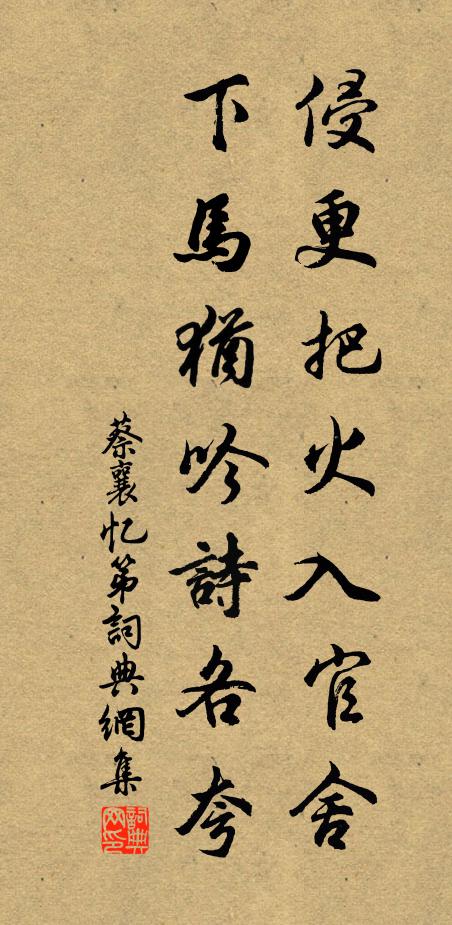 侵更把火入官舍
下馬猶吟詩各夸
蔡襄忆第詞典網集
詞典网印